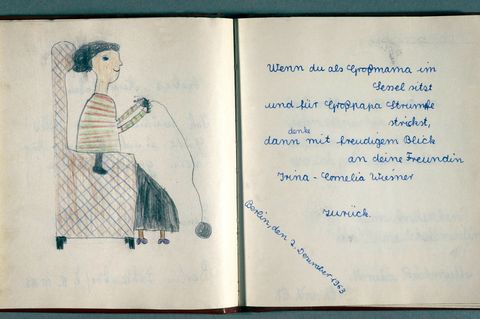 Wenn du als Großmama im
Sesel sitst
und für Großpapa Strümpfe
strickst,
denke
dann mit freudigem Blick
an deine Freundin
Irina-Cornelia Wiesner
zurück.
Berlin, den 2. Dezember 1963